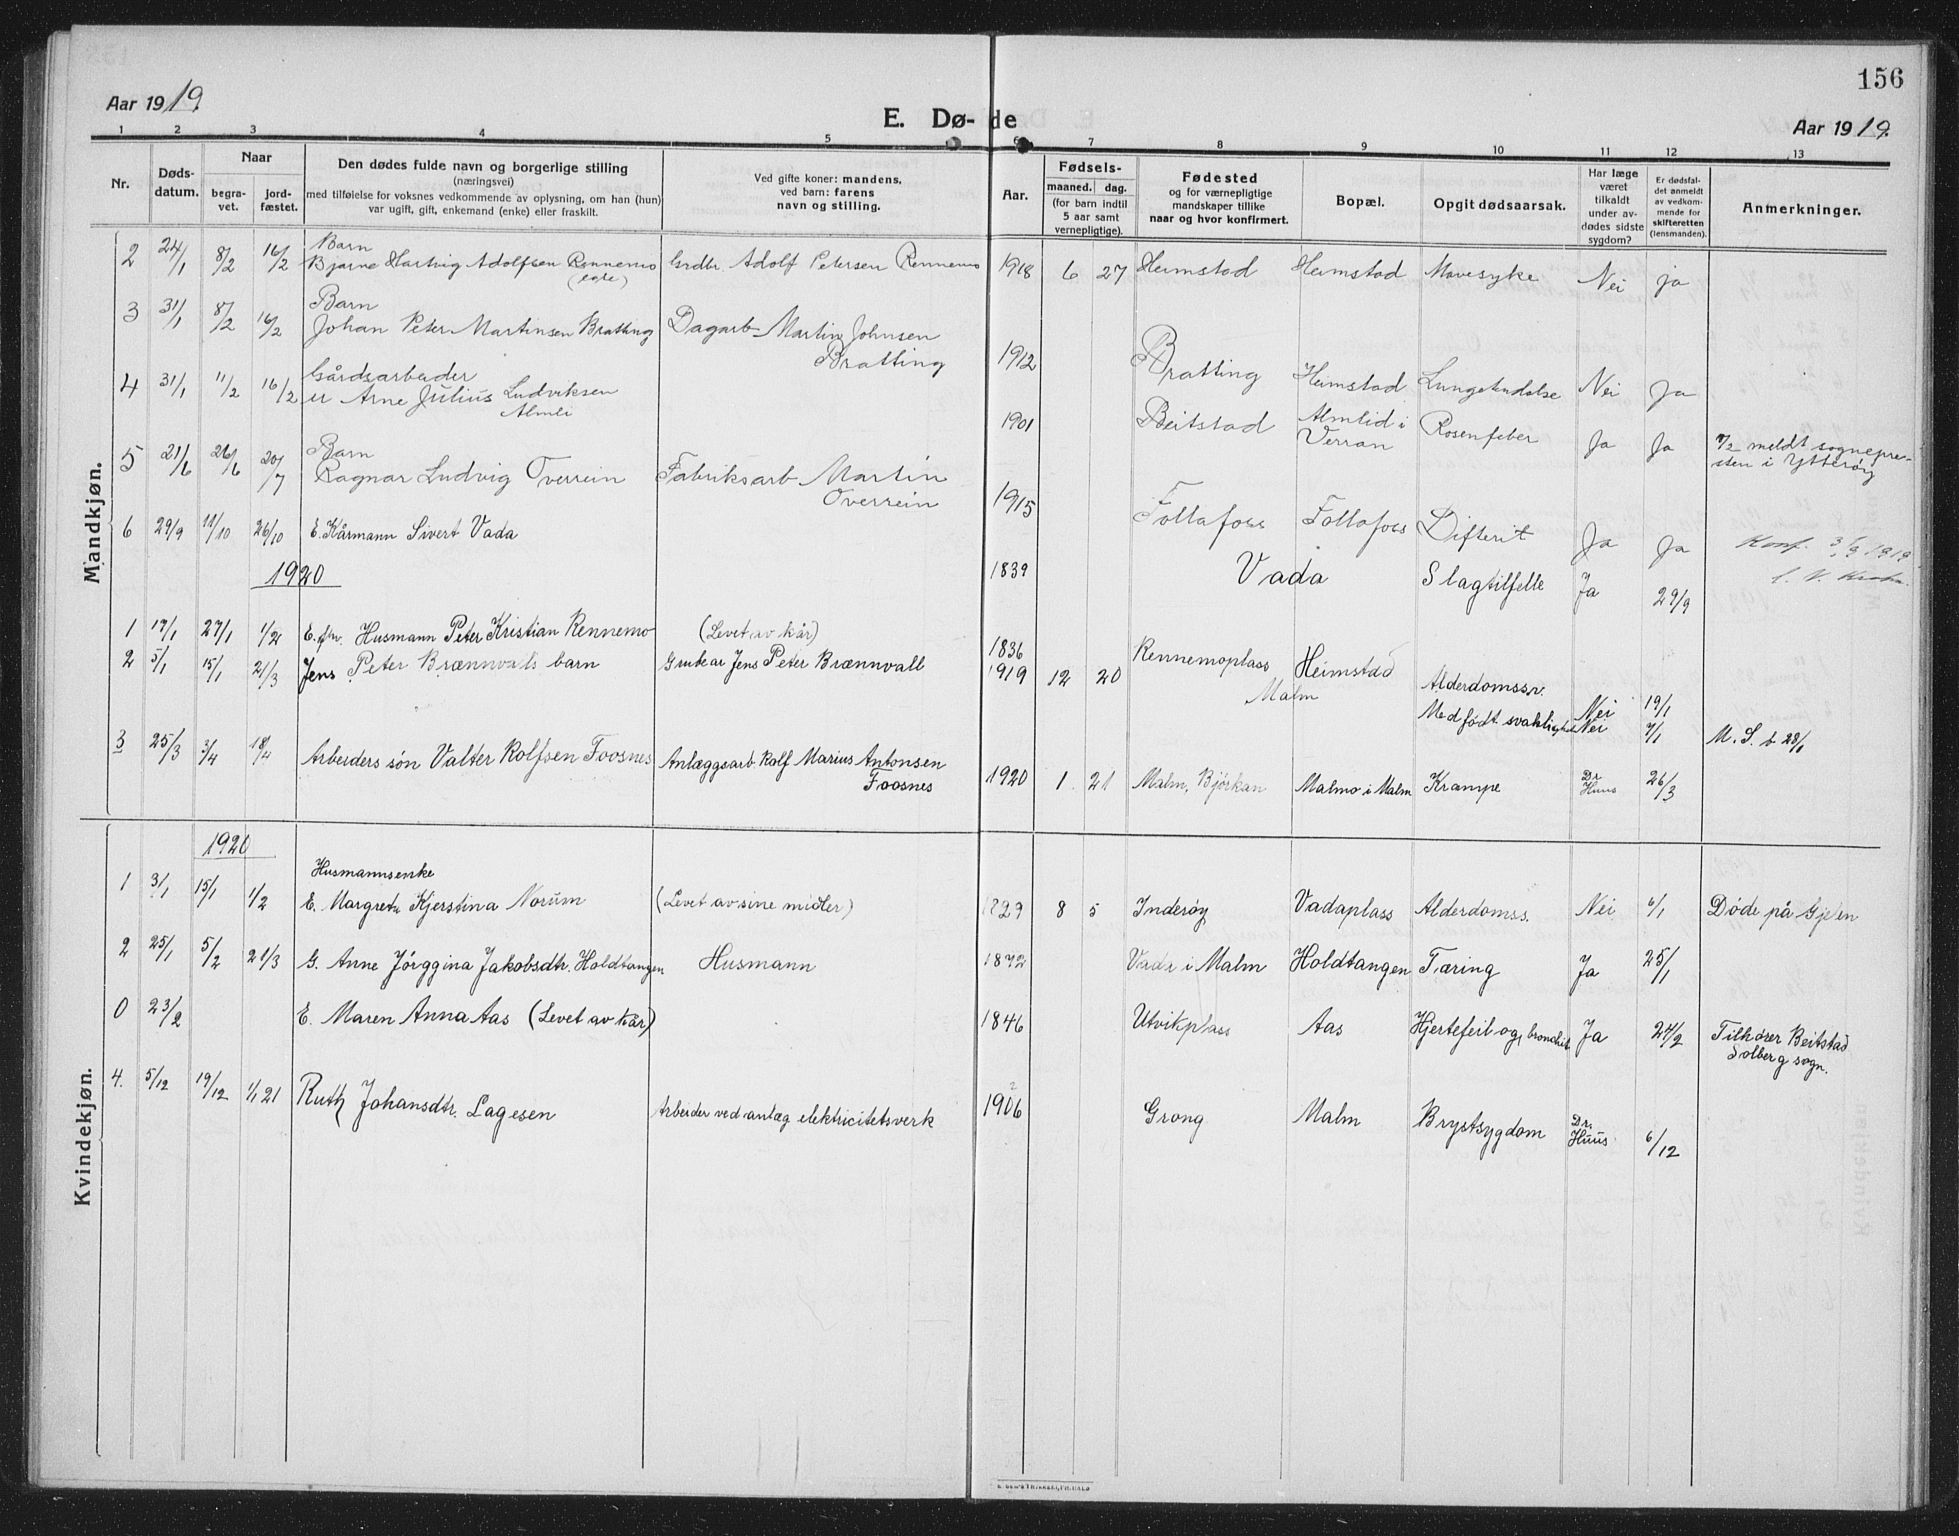 156
Aar 1919.
E. Dø- de
Aar 1919.
1 2 3 4 5 6 7 8 9 10 11 12 13
Nr.
Døds-
datum.
Naar
begra-
vet.
jord-
fæstet.
Den dødes fulde navn og borgerlige stilling
(næringsvei)
med tilføielse for voksnes vedkommende av oplysning, om han (hun)
var ugift, gift, enkemand (enke) eller fraskilt.
Ved gifte koner: mandens,
ved barn: farens
navn og stilling.
Aar.
Fødsels-
maaned. dag.
(for barn indtil
5 aar samt
vernepligtige).
Fødested
og for værnepligtige
mandskaper tillike
naar og hvor konfirmert.
Bopæl.
Opgit dødsaarsak.
Har læge
været
tilkaldt
under av-
dødes sidste
sygdom?
Er dødsfal-
det anmeldt
av vedkom-
mende for
skifteretten
(lensmanden).
Anmerkninger.
Mandkjøn.
Barn
2 24/1 8/2 16/2 Bjarne Hartvig Adolfsen Rennemo Grdbr. Adolf Petersen Rennemo 1918 6 27 Heimstad Heimstad Mavesyke Nei ja
Barn
3 31/1 8/2 16/2 Johan Peter Martinsen Bratting Dagarb Martin Johnsen
Bratting 1912 Bratting Heimstad Lungetændelse Nei Ja
Gårdsarbeider
4 31/1 11/2 16/2 u Arne Julius Ludviksen
Almli 1901 Beitstad Almlid i
Verran Rosenfeber Ja Ja 7/2 meldt sognepre-
sten i Ytterøy
Barn
5 21/6 26/6 20/7 Ragnar Ludvig Overrein Fabriksarb Martin
Overrein 1915 Follafoss Follafoss Difterit Ja Ja
6 29/9 11/10 26/10 E. Kårmann Sivert Vada 1839 Vada Slagtilfelle Ja 29/9
1920
1 17/1 27/1 1/2 Husmann Peter Kristian Rennemo (Levet av kår) 1836 Rennemoplass Heimstad Alderdomssv. Nei 19/1
2 5/1 15/1 21/3 Jens Peter Brænnvalls barn Grubear Jens Peter Brænnvall 1919 12 20 Malm Medfødt svaklighet Nei 7/1 M. S.
3 25/3 3/4 18/4 Arbeiders søn Valter Rolfsen Foosnes Anlæggsarb. Rolf Marius Antonsen
Foosnes 1920 1 21 Malm, Bjørkan Malmo i Malm Krampe Dr.
Huus 26/3
Kvindekjøn.
1920
Husmannsenke
1 3/1 15/1 1/2 E. Margrete Kjerstina Norum (Levet av sine midler) 1829 8 5 Inderøy Vadaplass Alderdomss. Nei 6/1 Døde på Gjelen
2 25/1 5/2 21/3 G. Anne Jørggina Jakobsdtr. Holdtangen Husmann 1872 Vada i Malm Holdtangen Tæring Ja 25/1
0 23/2 E. Maren Anna Aas (Levet av kår) 1846 Utvikplass Aas Hjertefeil og bronchit Ja 24/2 Tilhører Beitstad
Solberg sogn.
4. 5/12 19/12 1/1 21 Ruth Johansdtr. Lagesen Arbeider ved anlæg elektricitetsverk 1906 Grong Malm Brystsygdom Dr.
Huus 6/12